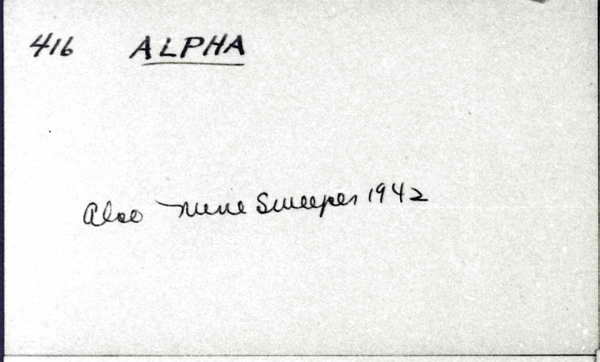 416 ALPHA
Also Mine Sweeper 1942